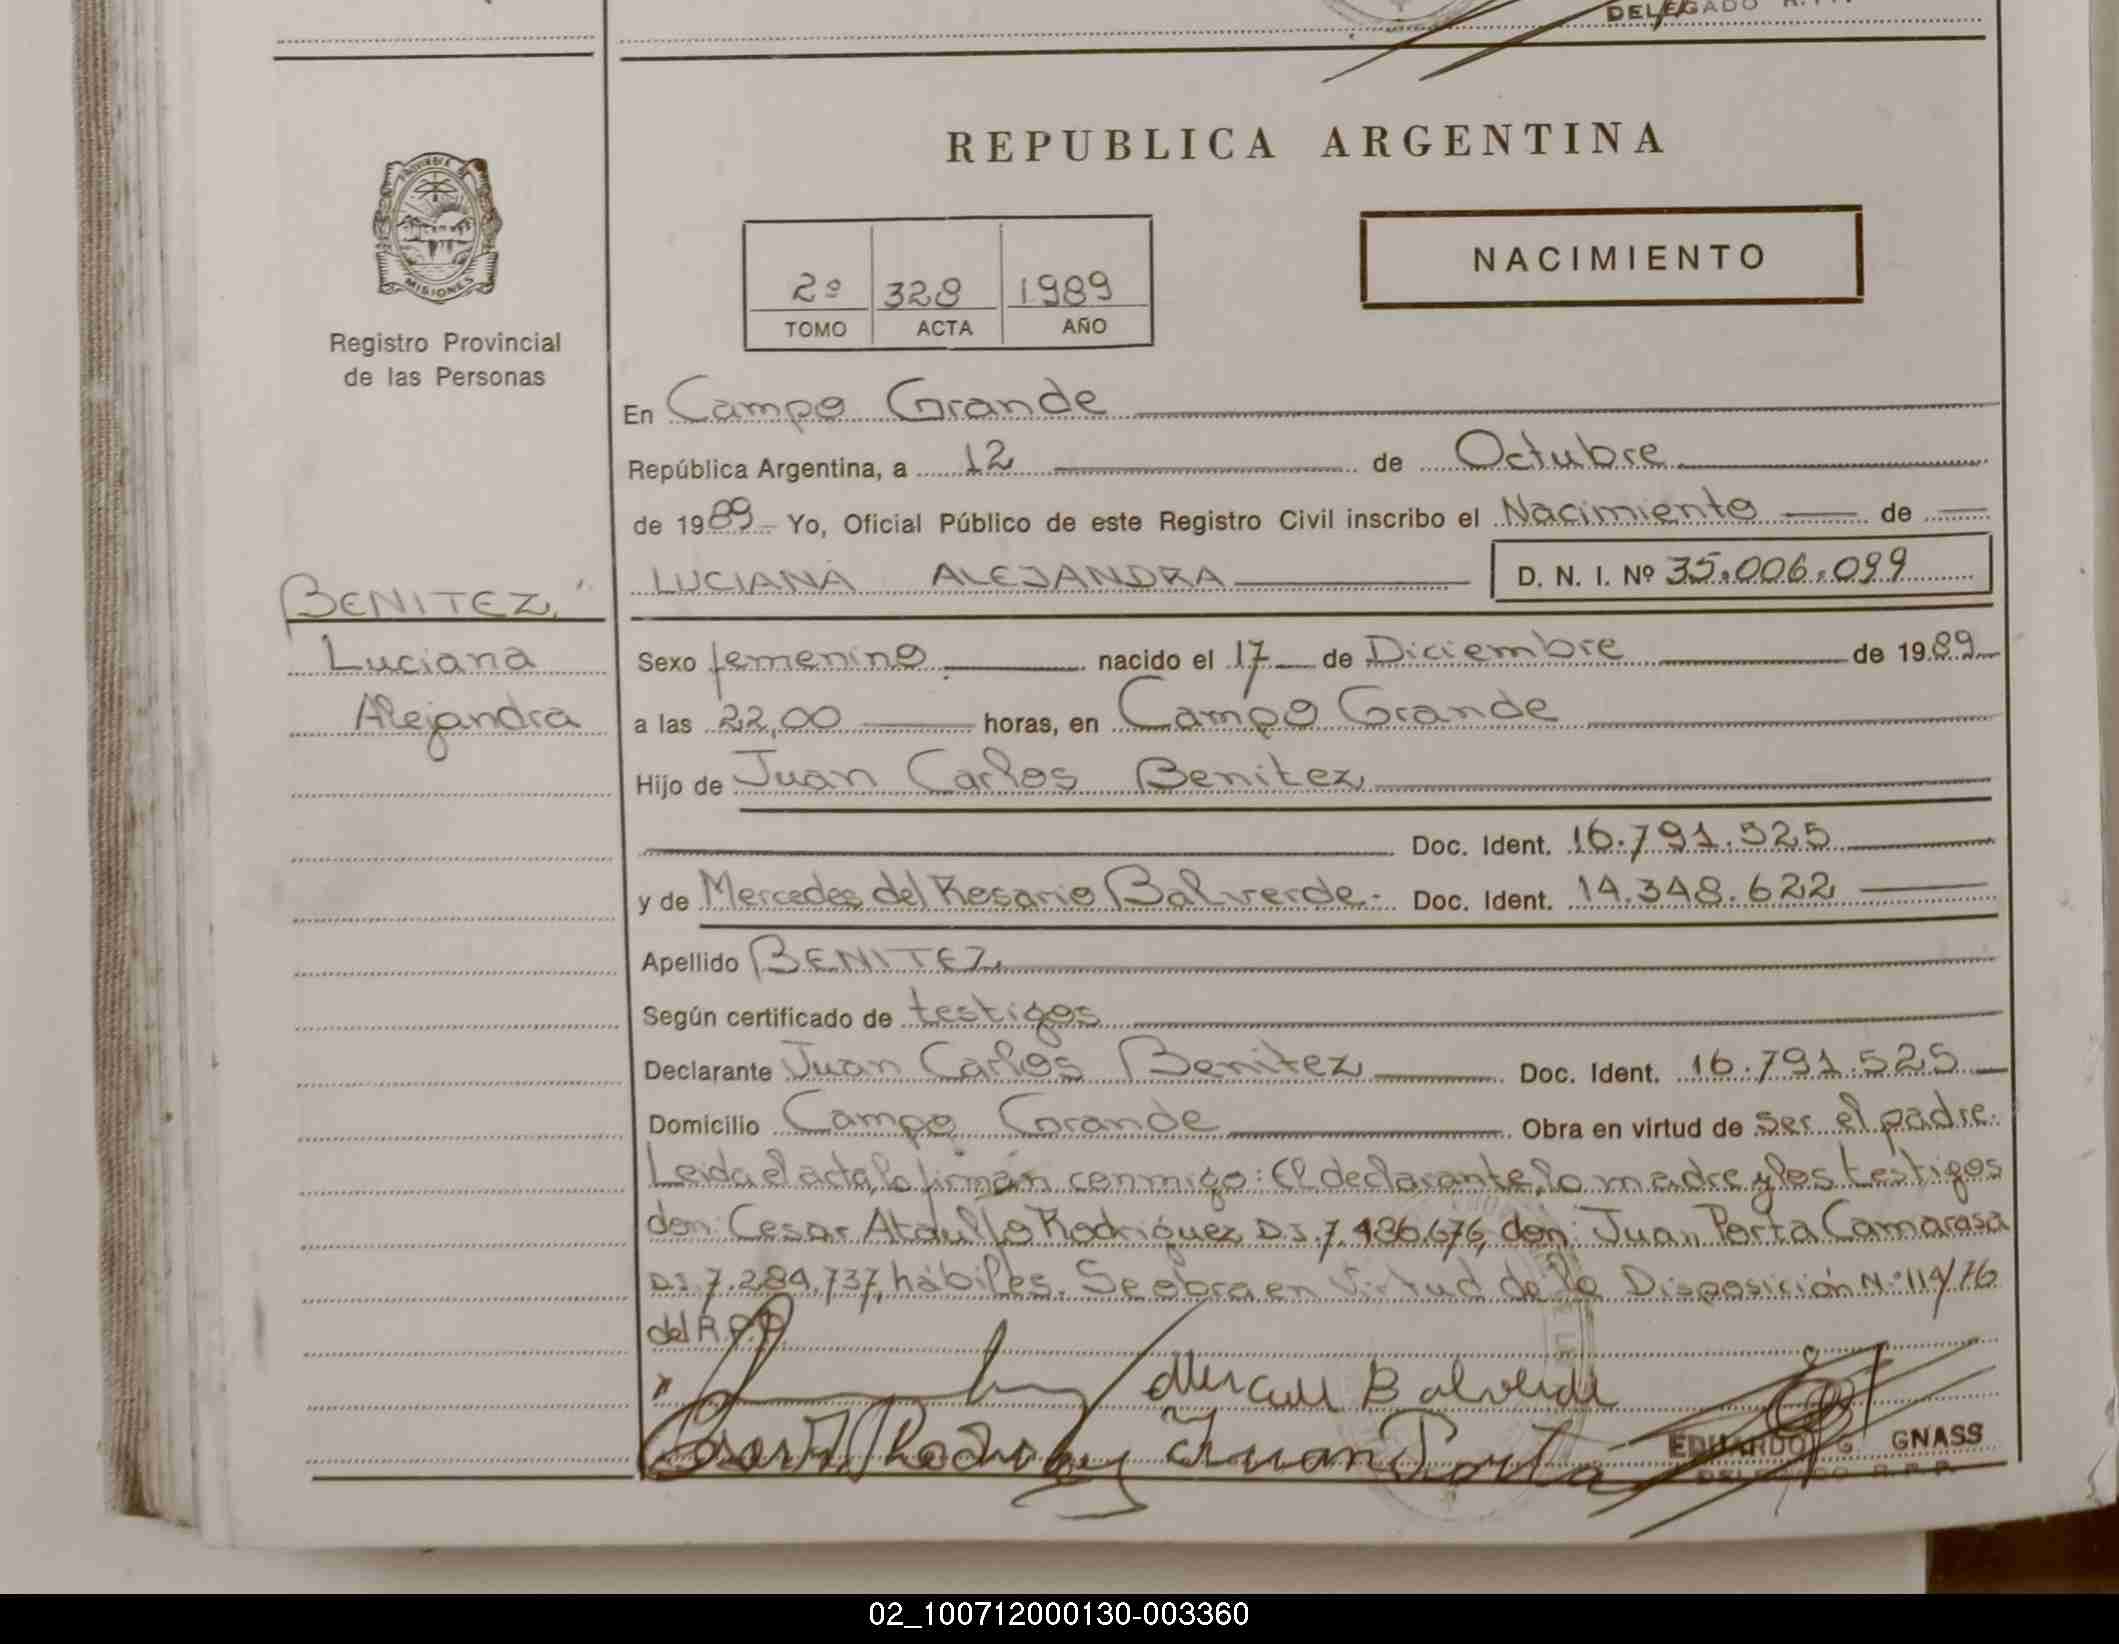 DELEGADO R.P.P.
REPUBLICA ARGENTINA
PROVINCIA
MISIONES
Registro Provincial
de las Personas
NACIMIENTO
2º 328 1989
TOMO ACTA AÑO
En Campo Grande
República Argentina, a 12 de Octubre
de 1989 Yo, Oficial Público de este Registro Civil inscribo el Nacimiento de
LUCIANA ALEJANDRA D. N. I. Nº 35.006.099
BENITEZ,
Luciana
Alejandra
Sexo femenino nacido el 17 de Diciembre de 1989
a las 22,00 horas, en Campo Grande
Hijo de Juan Carlos Benitez
Doc. Ident. 16.791.525
y de Mercedes del Rosario Balverde.- Doc. Ident. 14.348.622
Apellido BENITEZ
Según certificado de testigos
Declarante Juan Carlos Benitez Doc. Ident. 16.791.525
Domicilio Campo Grande Obra en virtud de ser el padre.
Leida el acta, la firmán conmigo: El declarante, la madre y los testigos
don: Cesar Ataulfo Rodriguez D.I. 7.486.676, don: Juan Porta Camarasa
D.I. 7.284.737, hábiles. Se obra en virtud de la Disposición N.º 114/76
del R.P.P.
Balverde
Cesar A. Rodriguez Juan Porta
EDUARDO G. GNASS
DELEGADO R.P.P.
02_100712000130-003360